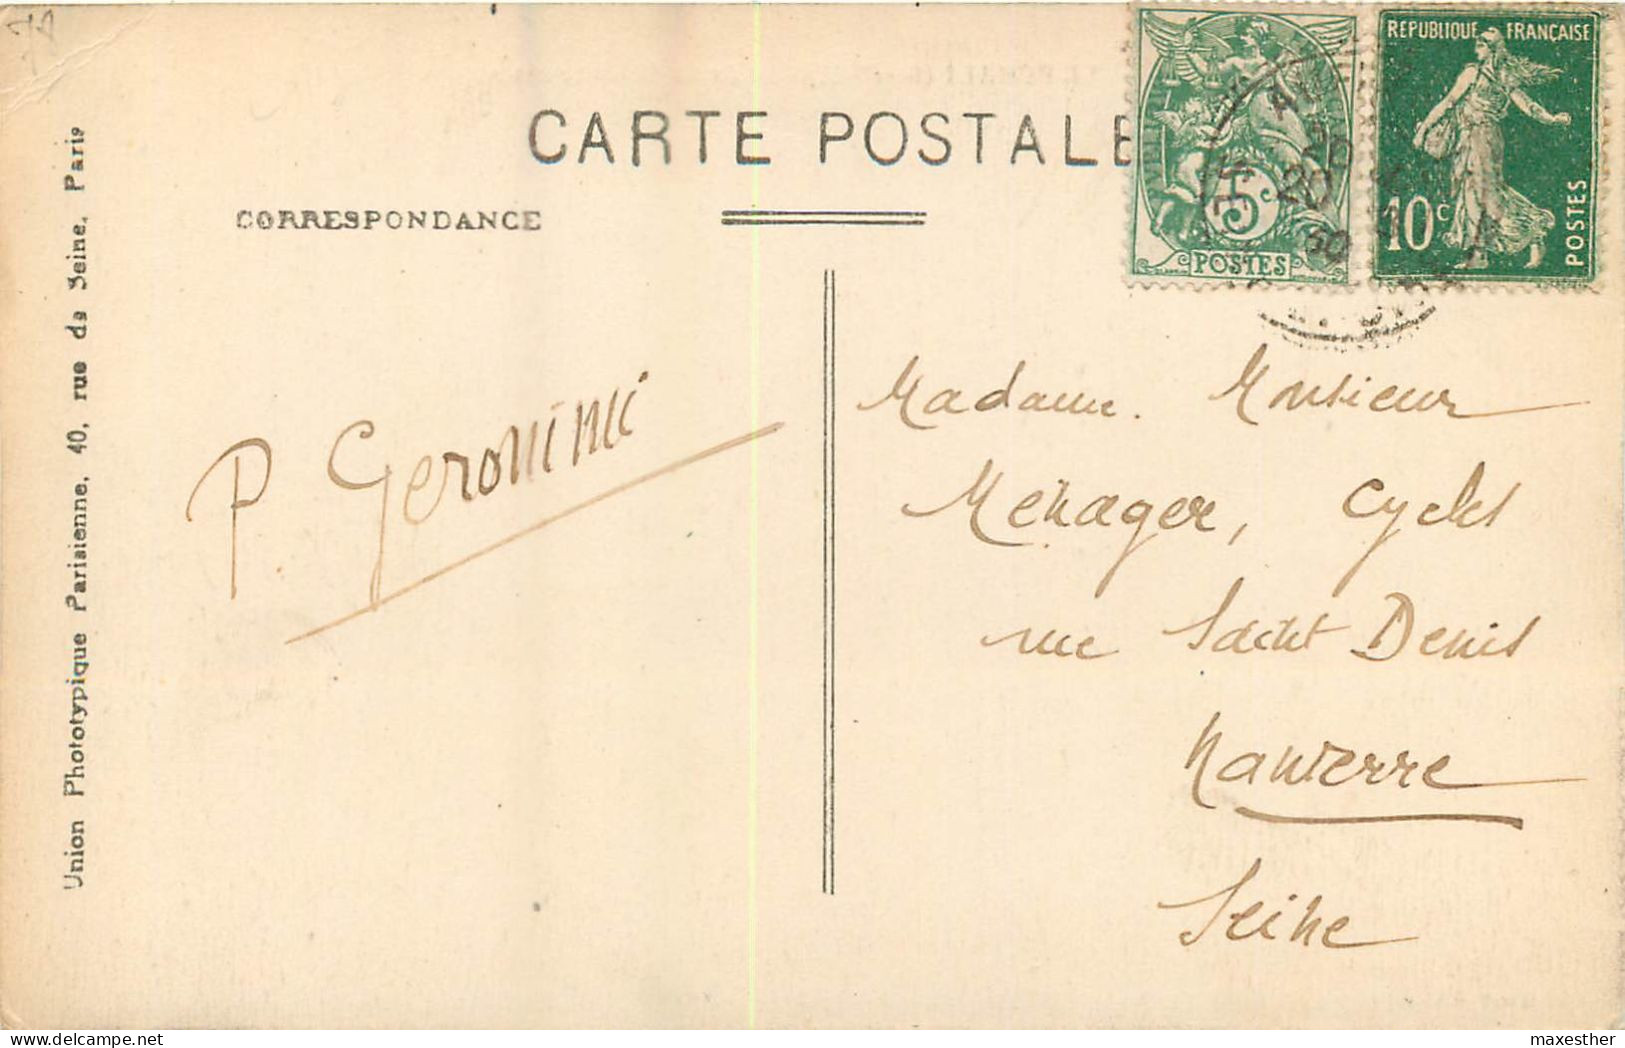 78
CARTE POSTALE
CORRESPONDANCE
Union Phototypique Parisienne, 40, rue de Seine, Paris
5c
POSTES
RÉPUBLIQUE FRANÇAISE
10c
POSTES
20
P. Geronimi
Madame. Monsieur
Ménager, Cycles
rue Saint Denis
Nanterre
Seine
maxesther